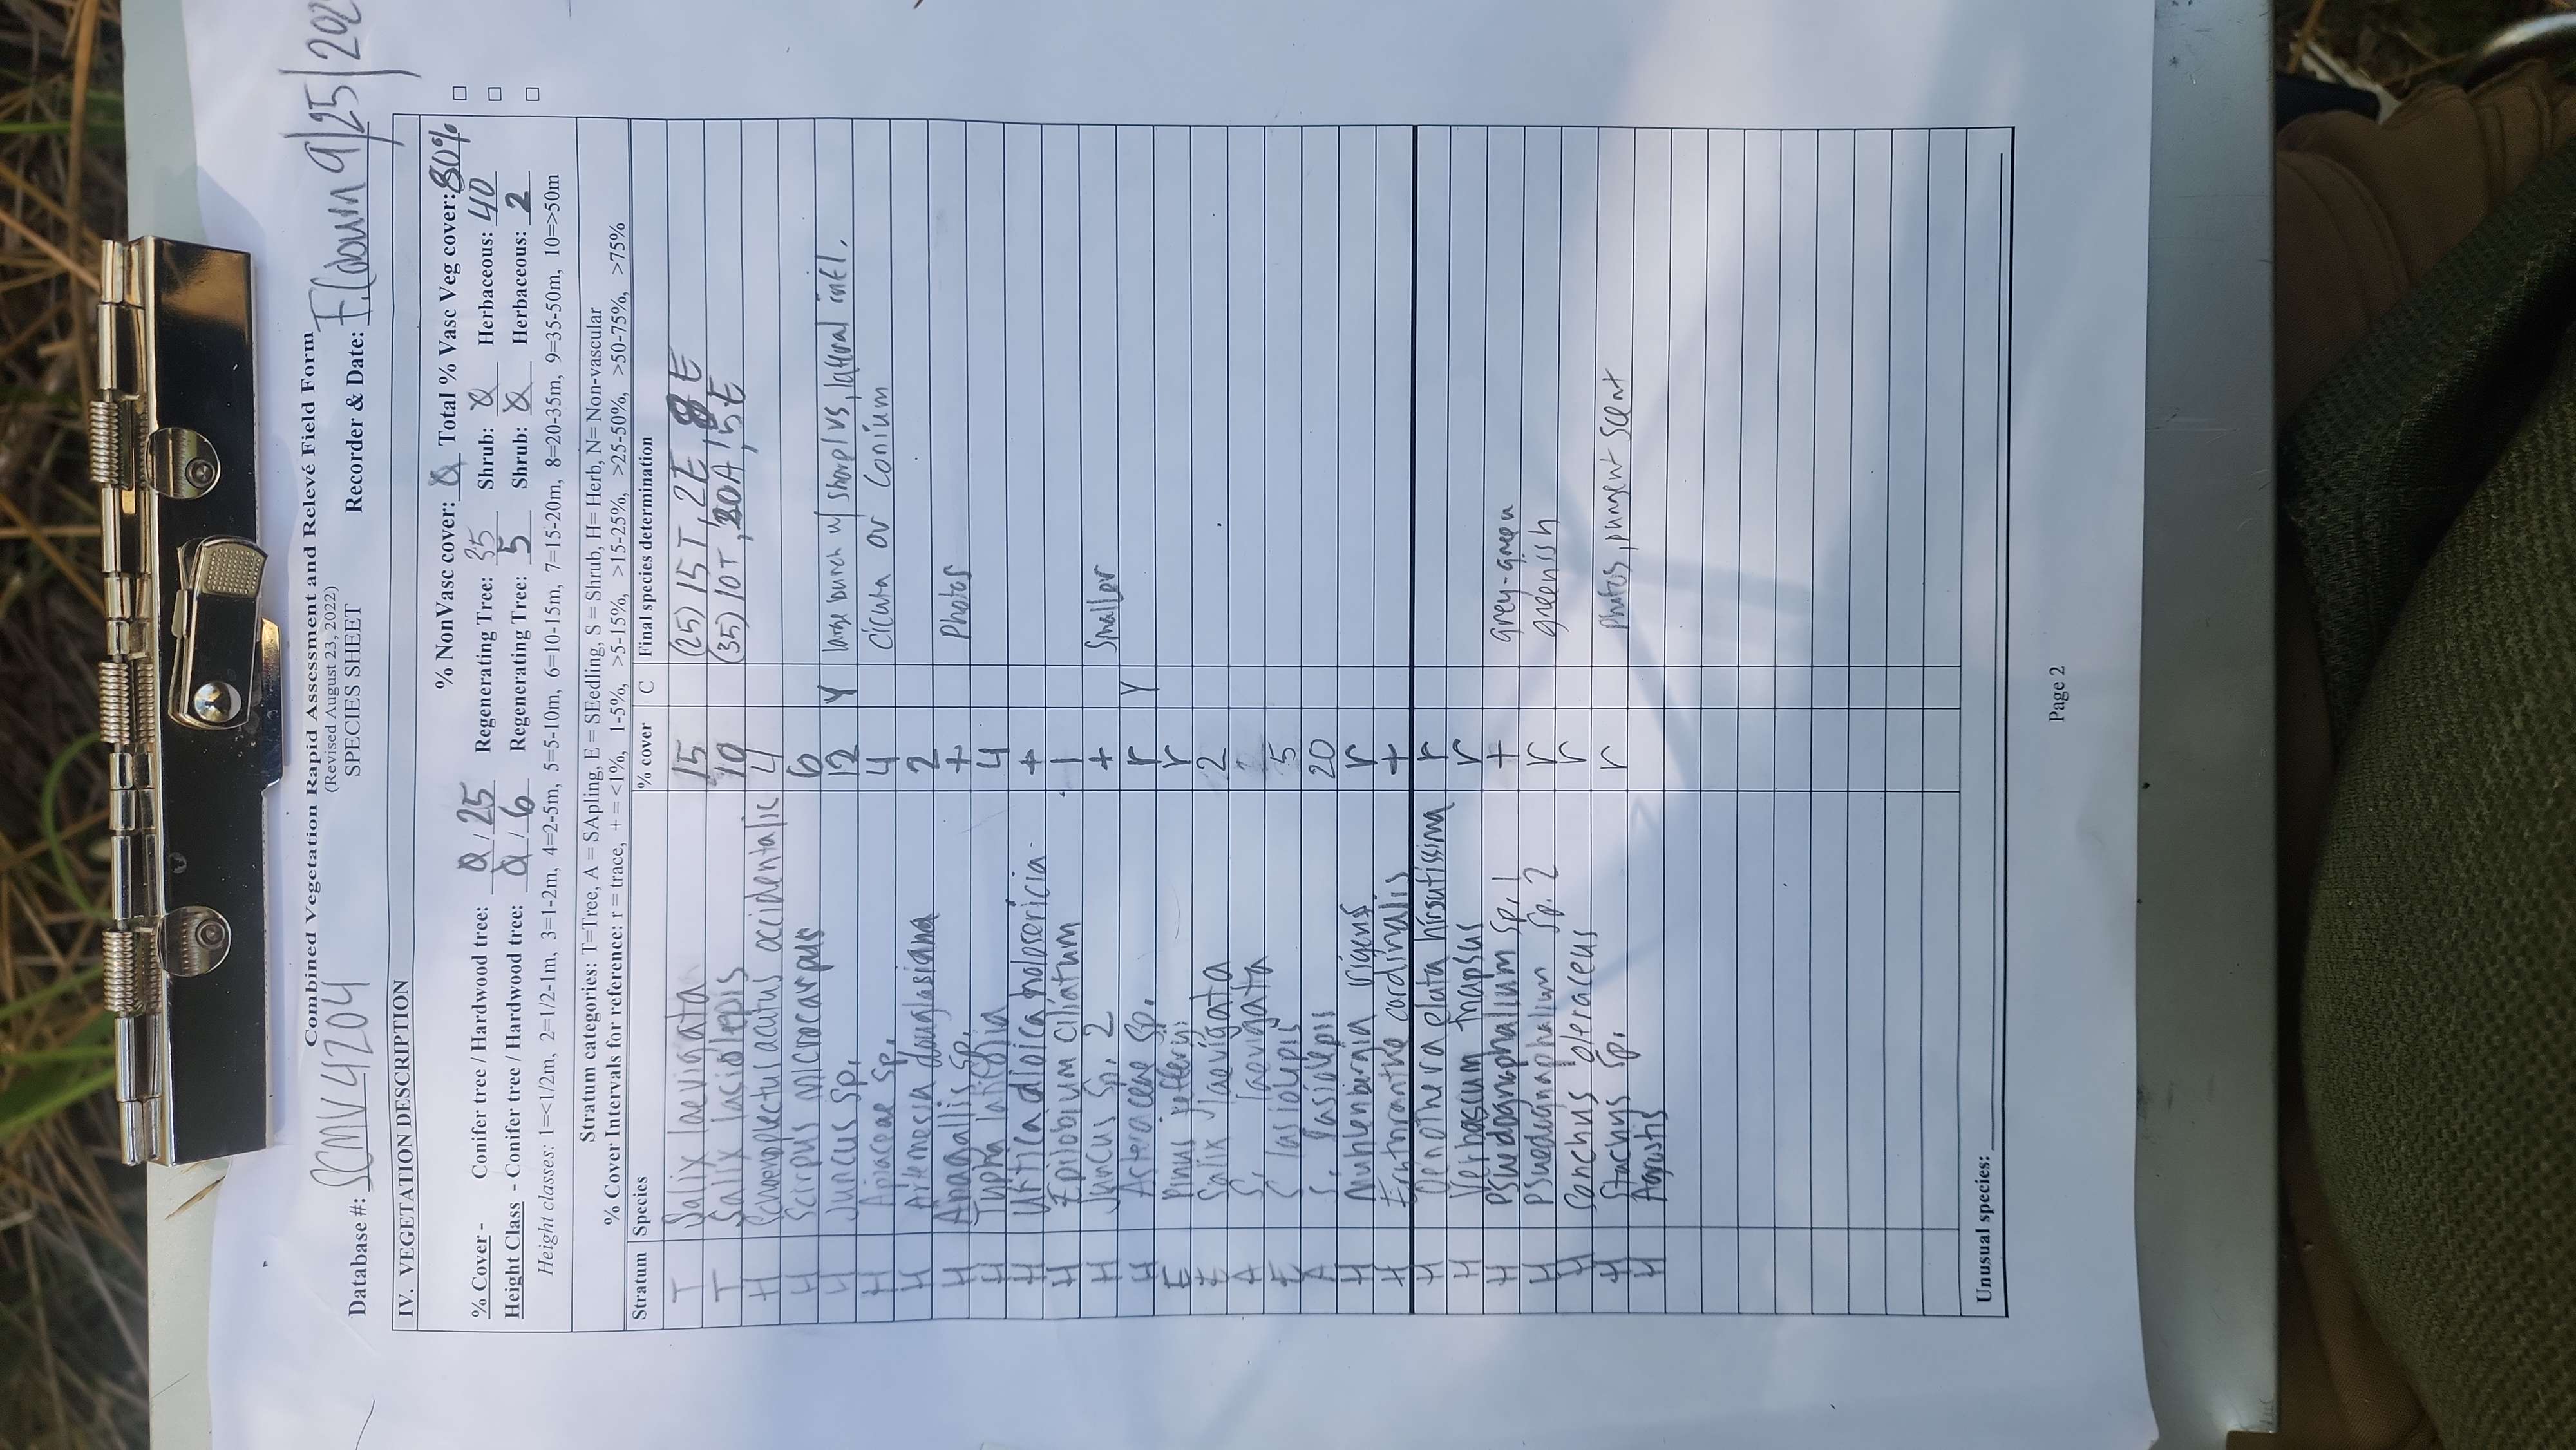 Combined Vegetation Rapid Assessment and Relevé Field Form
(Revised August 23, 2022)
SPECIES SHEET
Database #: SCMV4204 Recorder & Date: 9/25/202
IV. VEGETATION DESCRIPTION
% NonVasc cover: 0 Total % Vasc Veg cover: 80%
% Cover - Conifer tree / Hardwood tree: 0 / 25 Regenerating Tree: 35 Shrub: 0 Herbaceous: 40
Height Class - Conifer tree / Hardwood tree: 0 / 6 Regenerating Tree: 5 Shrub: 0 Herbaceous: 2
Height classes: 1=<1/2m, 2=1/2-1m, 3=1-2m, 4=2-5m, 5=5-10m, 6=10-15m, 7=15-20m, 8=20-35m, 9=35-50m, 10=>50m
Stratum categories: T=Tree, A = SApling, E = SEedling, S = Shrub, H= Herb, N= Non-vascular
% Cover Intervals for reference: r = trace, + = <1%, 1-5%, >5-15%, >15-25%, >25-50%, >50-75%, >75%
Stratum Species % cover C Final species determination
T Salix laevigata 15 (25) 15T, 2E, 8E
T Salix lasiolepis 10 (35) 10T, 20A, 5E
H Schoenplectus acutus occidentalis 4
H Scirpus microcarpus 6
H Juncus sp. 12 Y large bunch w/ sharp lvs, lateral infl.
H Apiaceae sp. 4 Cicuta or Conium
H Artemesia douglasiana 2
H Anagallis sp. + Photos
H Typha latifolia 4
H Urtica dioica holosericia +
H Epilobium ciliatum 1
H Juncus sp. 2 + Smaller
H Asteraceae sp. r Y
E Pinus r
E Salix laevigata 2
A S. laevigata
E S. lasiolepis 5
A S. lasiolepis 20
H Muhlenbergia rigens r
H Erythranthe cardinalis +
H Oenothera elata hirsutissima r
H Verbascum thapsus r
H Psuedognaphalium sp. 1 + grey-green
H Psuedognaphalium sp. 2 r greenish
H Sonchus oleraceus r
H Stachys sp. r photos, pungent scent
H Agrostis
Unusual species:
Page 2